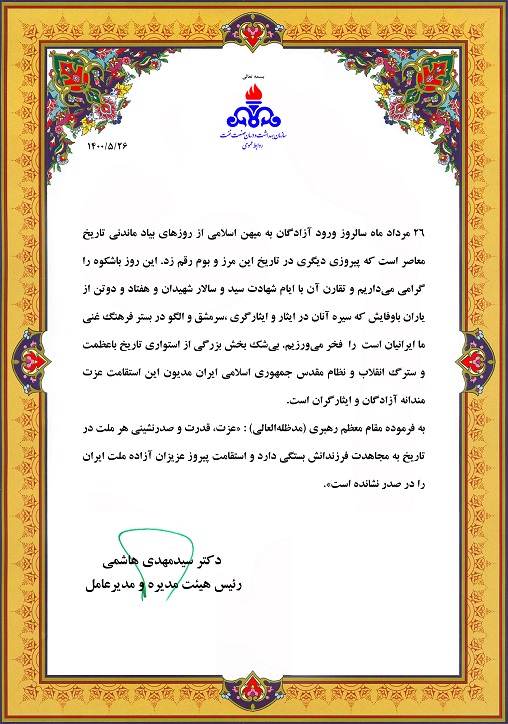 بسمه تعالی
سازمان بهداشت و درمان صنعت نفت
روابط عمومی
۱۴۰۰/۵/۲۶
۲۶ مرداد ماه سالروز ورود آزادگان به میهن اسلامی از روزهای بیاد ماندنی تاریخ
معاصر است که پیروزی دیگری در تاریخ این مرز و بوم رقم زد. این روز باشکوه را
گرامی می‌داریم و تقارن آن با ایام شهادت سید و سالار شهیدان و هفتاد و دوتن از
یاران باوفایش که سیره آنان در ایثار و ایثارگری ،سرمشق و الگو در بستر فرهنگ غنی
ما ایرانیان است را فخر می‌ورزیم. بی‌شک بخش بزرگی از استواری تاریخ باعظمت
و سترگ انقلاب و نظام مقدس جمهوری اسلامی ایران مدیون این استقامت عزت
مندانه آزادگان و ایثارگران است.
به فرموده مقام معظم رهبری (مدظله‌العالی) : «عزت، قدرت و صدرنشینی هر ملت در
تاریخ به مجاهدت فرزندانش بستگی دارد و استقامت پیروز عزیزان آزاده ملت ایران
را در صدر نشانده است».
دکتر سیدمهدی هاشمی
رئیس هیئت مدیره و مدیرعامل